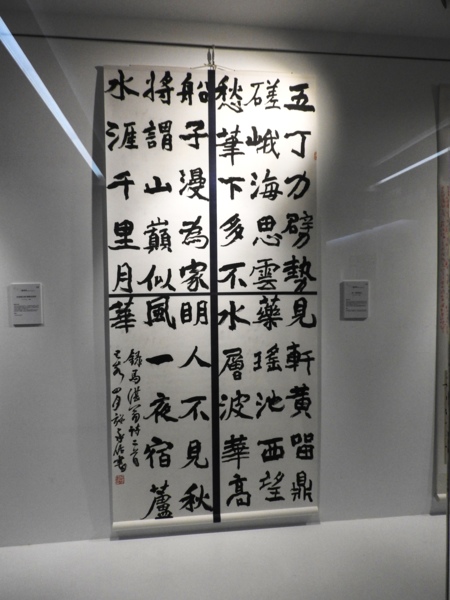 五丁力劈勢見軒黃留鼎
磋峨海思雲藥瑤池西望
愁華下多不水層波華高
船子漫為家明人不見秋
將謂山巔似風一夜宿蘆
水涯千里月華
錄馬湛翁詩二首
四月
書